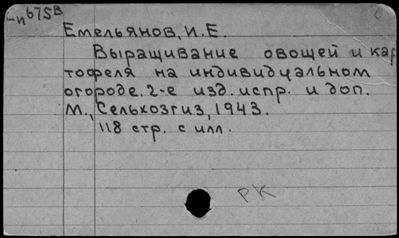 -и675В
Емельянов, И.Е.
Выращивание овощей и кар
тофеля на индивидуальном
огороде. 2-е изд. испр. и доп.
М., Сельхозгиз, 1943.
118 стр. с илл.
РК